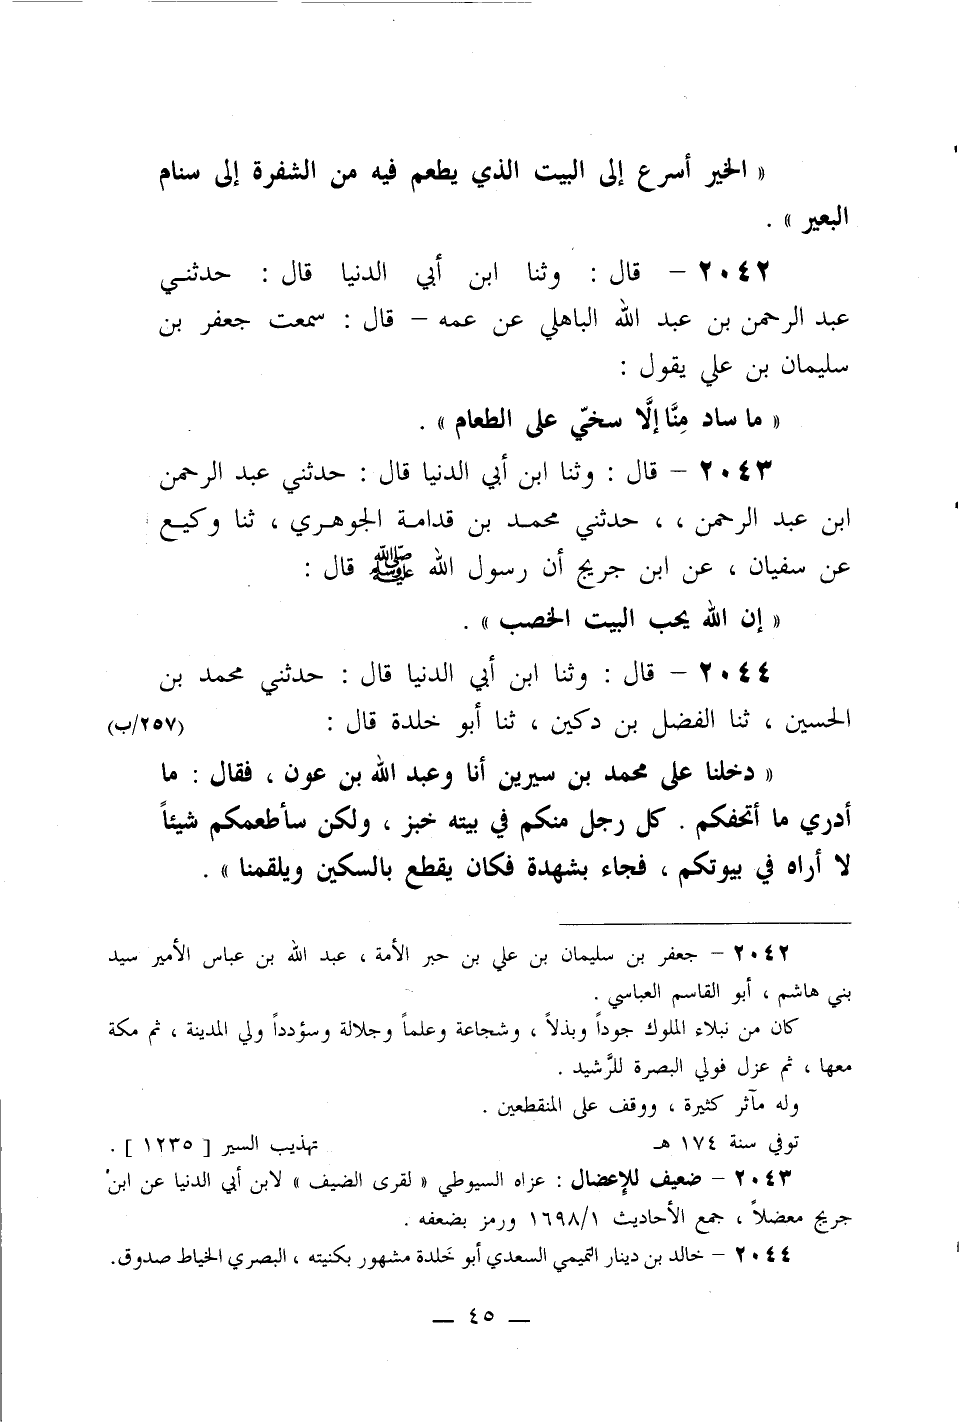 « الخير أسرع إلى البيت الذي يطعم فيه من الشفرة إلى سنام
البعير » .
٢٠٤٢ – قال : وثنا ابن أبي الدنيا قال : حدثنـي
عبد الرحمن بن عبد الله الباهلي عن عمه – قال : سمعت جعفر بن
سليمان بن علي يقول :
« ما ساد مِنَّا إلَّا سخيّ على الطعام » .
٢٠٤٣ – قال : وثنا ابن أبي الدنيا قال : حدثني عبد الرحمن
ابن عبد الرحمن ، ، حدثني محمـد بن قدامـة الجوهـري ، ثنا وكيـع
عن سفيان ، عن ابن جريج أن رسول الله ﷺ قال :
« إن الله يحب البيت الخصب » .
٢٠٤٤ – قال : وثنا ابن أبي الدنيا قال : حدثني محمد بن
الحسين ، ثنا الفضل بن دكين ، ثنا أبو خلدة قال : (٢٥٧/ب)
« دخلنا على محمد بن سيرين أنا وعبد الله بن عون ، فقال : ما
أدري ما أتحفكم . كل رجل منكم في بيته خبز ، ولكن سأطعمكم شيئاً
لا أراه في بيوتكم ، فجاء بشهدة فكان يقطع بالسكين ويلقمنا » .
٢٠٤٢ – جعفر بن سليمان بن علي بن حبر الأمة ، عبد الله بن عباس الأمير سيد
بني هاشم ، أبو القاسم العباسي .
كان من نبلاء الملوك جوداً وبذلاً ، وشجاعة وعلماً وجلالة وسؤدداً ولي المدينة ، ثم مكة
معها ، ثم عزل فولي البصرة للرَّشيد .
وله مآثر كثيرة ، ووقف على المنقطعين .
توفي سنة ١٧٤ هـ تهذيب السير [ ١٢٣٥ ] .
٢٠٤٣ – ضعيف للإعضال : عزاه السيوطي « لقرى الضيف » لابن أبي الدنيا عن ابن
جريج معضلاً ، جمع الأحاديث ١٦٩٨/١ ورمز بضعفه .
٢٠٤٤ – خالد بن دينار التميمي السعدي أبو خَلدة مشهور بكنيته ، البصري الخياط صدوق.
— ٤٥ —